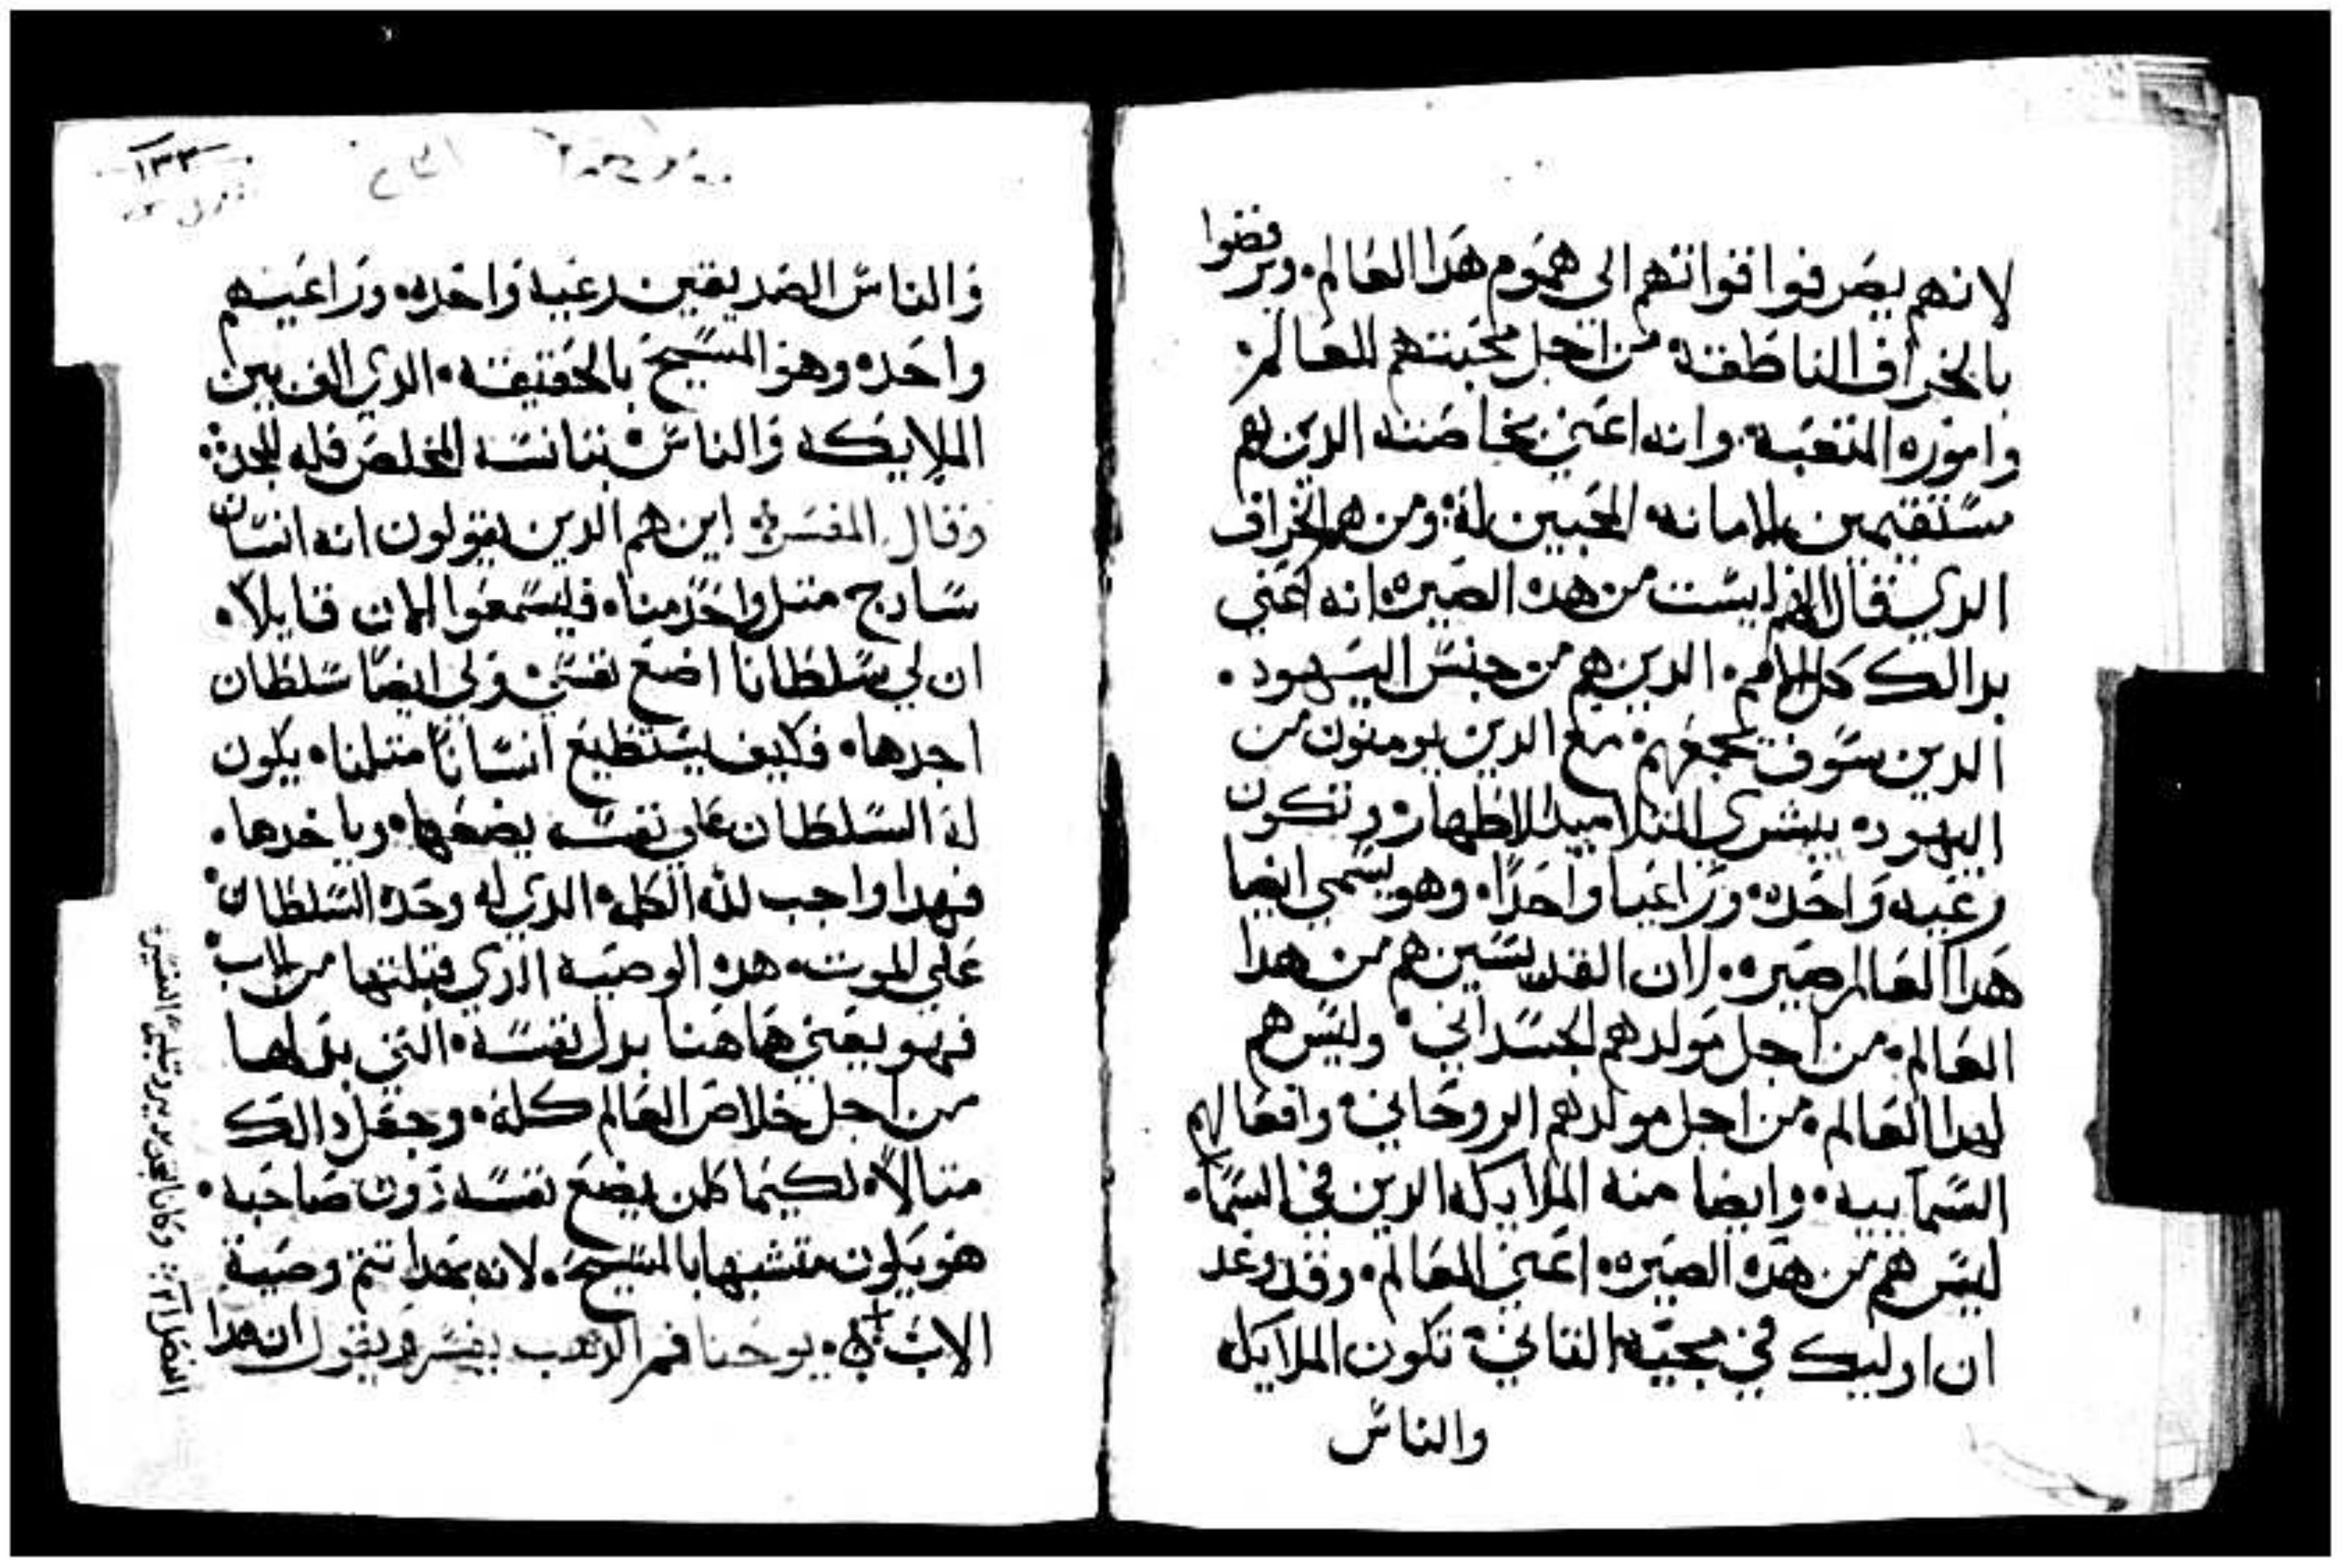 لانهم يصرفوا قواتهم الي هموم هدا العالم٠ ويرفضوا
بالخراف الناطقة٠ من اجل محبتهم للعالم٠
واموره المتعبة٠ وانه اعني بخاصته الدين هم
مستقيمين بالامانه المحبين له٠ ومن هم الخراف
الدي قال انهم ليست من هده الصيره٠ انه اعني
بدالك كل الامم٠ الدين هم من جنس اليهود٠
الدين سوف تجمعهم٠ مع الدين يومنون من
اليهود٠ ببشري التلاميد الاطهار٠ وتكون
رعيه واحده٠ وراعيا واحدا٠ وهو يسمي ايضا
هدا العالم صيره٠ لان القديسين هم من هدا
العالم٠ من اجل مولدهم الجسداني٠ وليس هم
لهدا العالم٠ من اجل مولدهم الروحاني٠ وافعالهم
السماييه٠ وايضا منه الملايكه الدين في السما٠
ليس هم من هده الصيره٠ اعني العالم٠ وقد وعد
ان اوليك في مجيه التاني٠ تكون الملايكه
والناس
١٣٣
والناس الصديقين رعية واحده٠ وراعيهم
واحد٠ وهو المسيح بالحقيقه٠ الدي الف بين
الملايكه والناس٠ بتانسه المخلص فله المجد٠
وقال المفسر٠ اين هم الدين يقولون انه انسان
سادج٠ متل واحد منا٠ فليسمعوا الان قايلا٠
ان لي سلطانا اضع نفسي٠ ولي ايضا سلطان
اجدها٠ فكيف يستطيع انسانا متلنا٠ يكون
له السلطان علي نفسه يضعها٠ وياخدها٠
فهدا واجب لله الكلمة٠ الدي له وحده السلطان٠
علي الموت٠ هده الوصيه الدي قبلتها من الاب٠
فهو يعني هاهنا بدل نفسه٠ التي بدلها
من اجل خلاص العالم كله٠ وجعل دالك
متالا٠ لكيما كلمن يضع نفسه دون صاحبه٠
هو يكون متشبها بالمسيح٠ لانه بهدا تتم وصية
الاب٠ يوحنا فم الدهب يفسر ويقول ان هدا